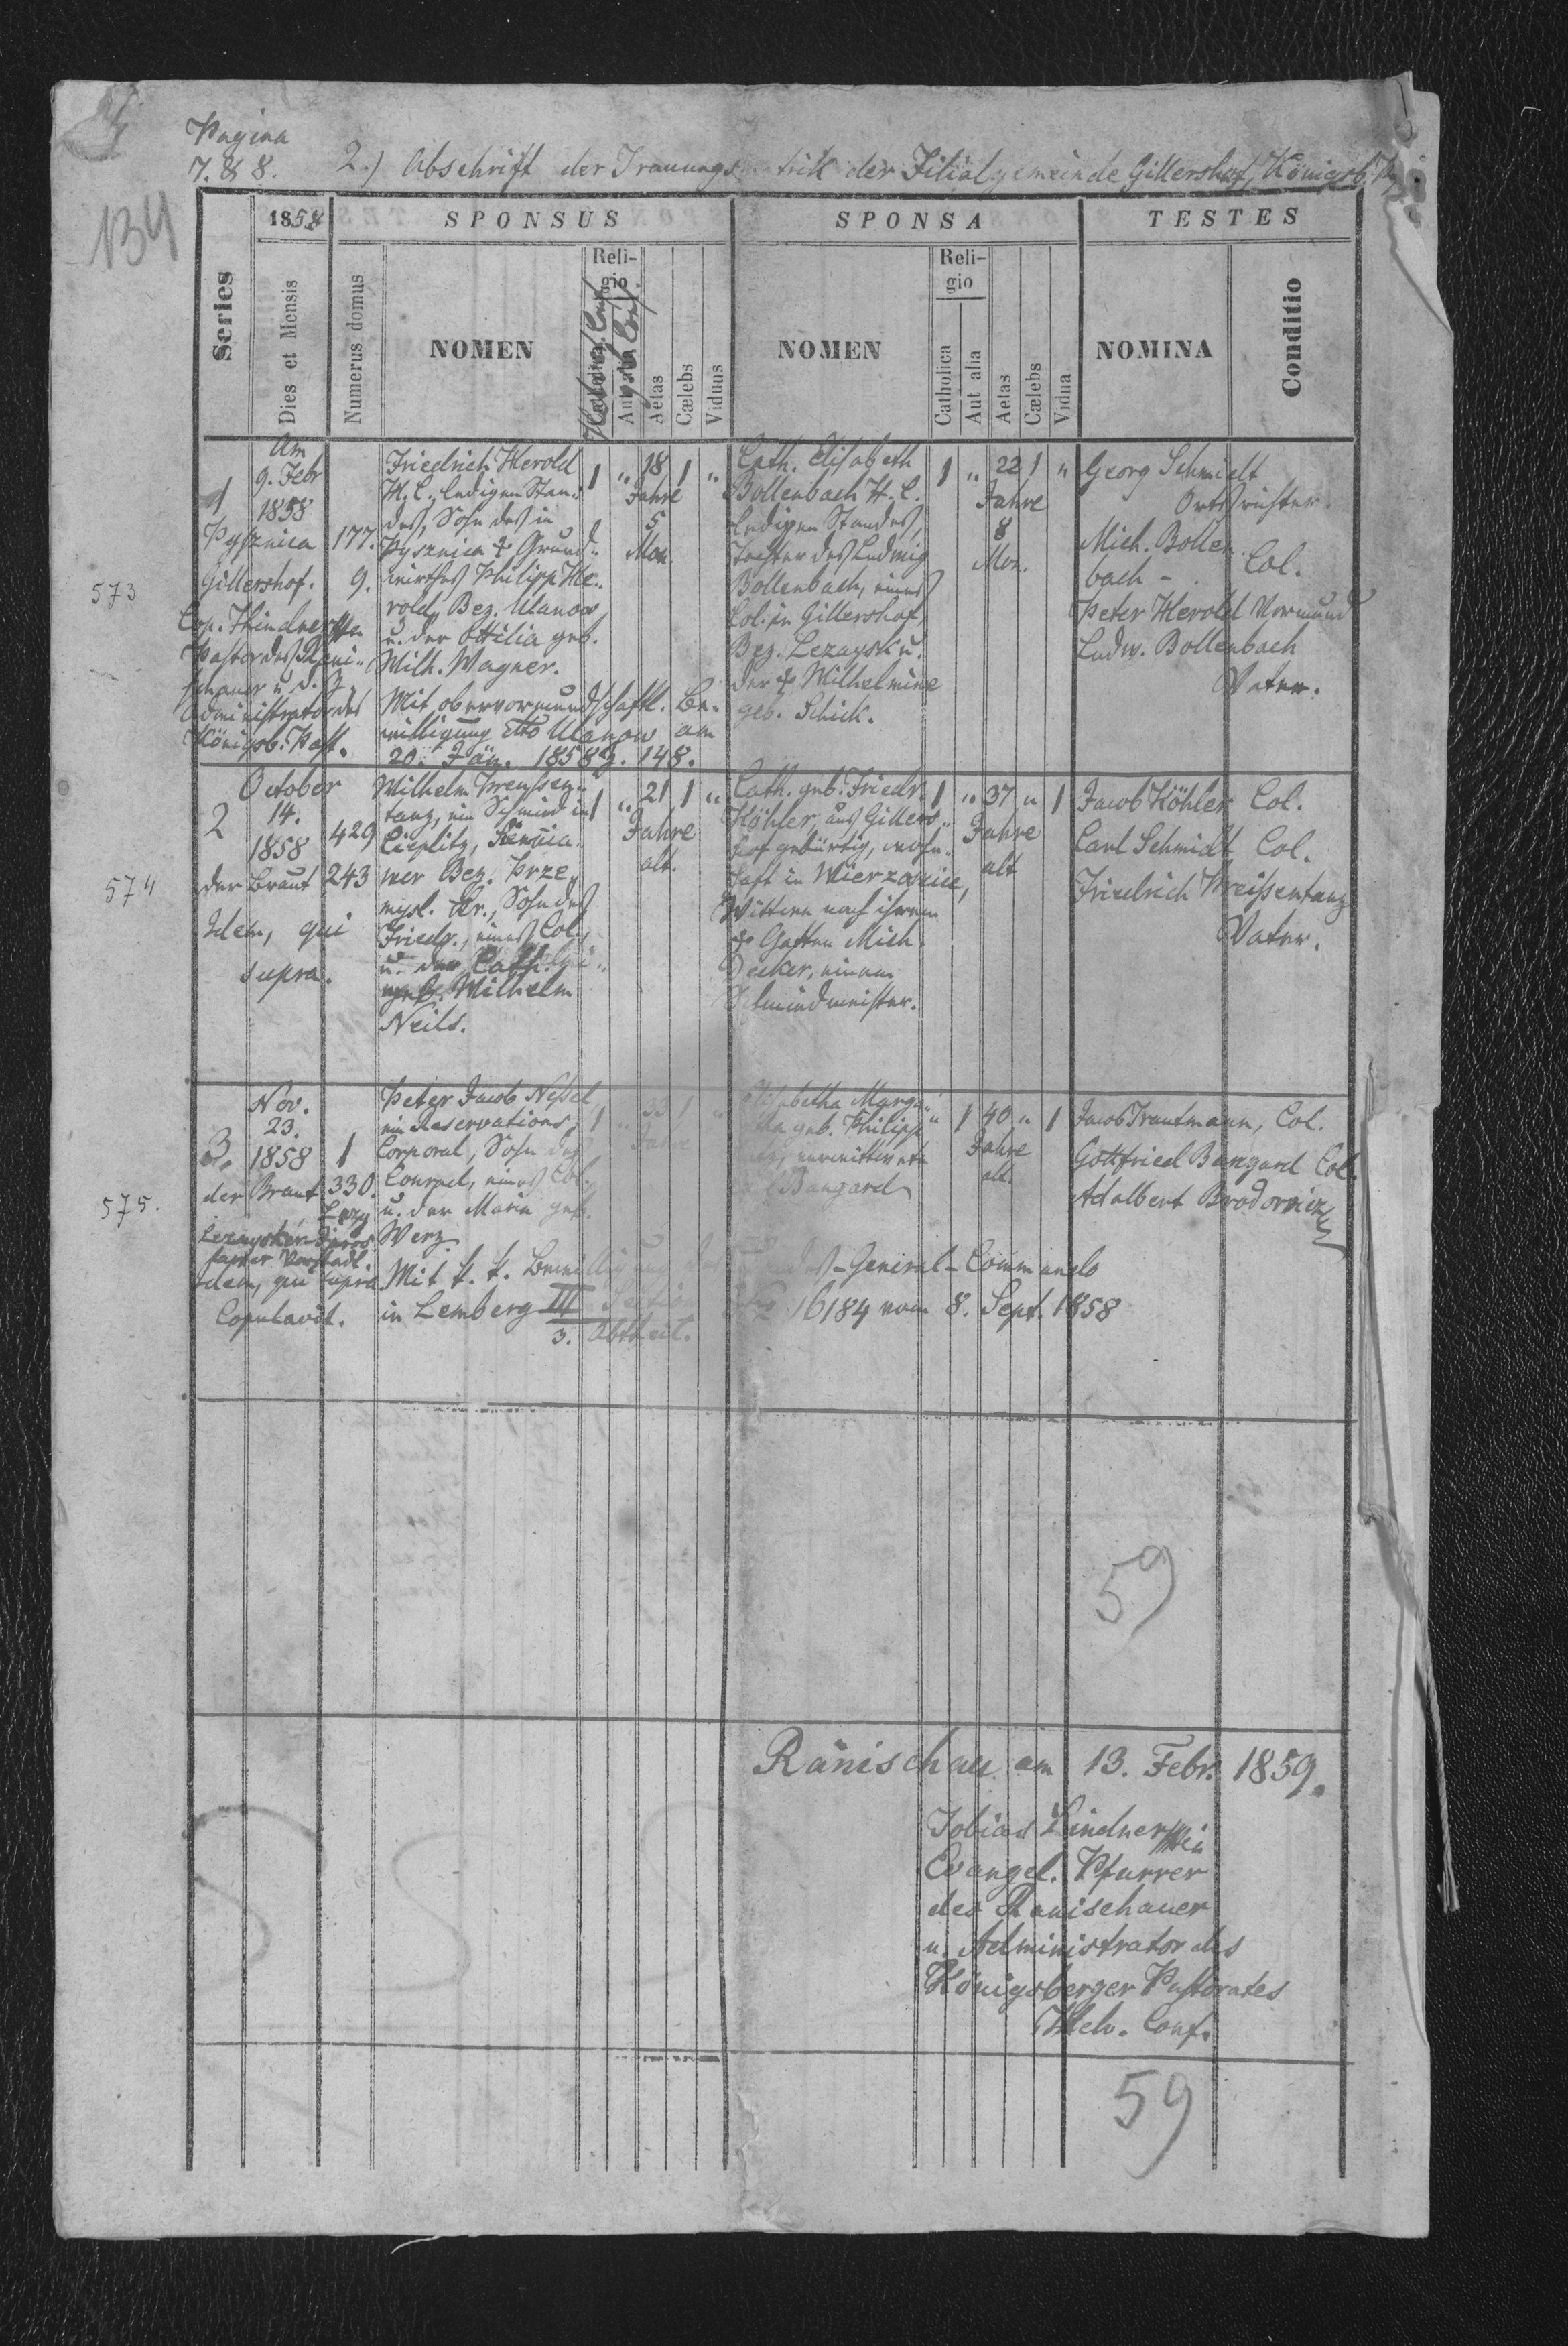 Pagina
7. & 8. 2.) Abschrift der Trauungsmatrik der Filialgemeinde Gillershof, Königsb.
134
1858 SPONSUS SPONSA TESTES
Series
Dies et Mensis
Numerus domus
NOMEN
Religio
Helvet. Conf.
Augsb. Conf.
Aetas
Cælebs
Viduus
NOMEN
Religio
Catholica
Aut alia
Aetas
Cælebs
Vidua
NOMINA
Conditio
573
1
Am
9. Febr
1858
Pysznica 177.
Gillershof. 9.
Cop. Lindner
Pastor des Rani-
schauer u. d. Z.
Administrator des
Königsb. Past.
Friedrich Herold
H. C. ledigen Stan-
des, Sohn des in
Pysznica † Grund-
wirthes Philipp He-
rold, Bez. Ulanow,
u. der Ottilia geb.
Wilh. Wagner.
Mit obervormundschaftl. Be-
willigung dto Ulanow am
20. Jän. 1858 Z. 148.
1 " 18 1 "
Jahre
5
Mon.
Cath. Elisabeth
Bollenbach H. C.
ledigen Standes,
Tochter des Ludwig
Bollenbach, eines
Col. in Gillershof,
Bez. Lezaysk u.
der † Wilhelmine
geb. Schick.
1 " 22 1 "
Jahre
8
Mon.
Georg Schmidt
Ortsrichter.
Mich. Bollen-
bach - Col.
Peter Herold Vormund
Ludw. Bollenbach
Vater.
574
2
October
14.
1858 429
der Braut 243
Idem, qui
supra.
Wilhelm Preussen-
tanz, ein Schmied in
Cieplitz, Sieniа-
wer Bez. Prze-
mysl. Kr., Sohn des
Friedr., eines Col.,
u. der Cath.
geb. Wilhelm
Neils.
1 " 21 1 "
Jahre
alt.
Cath. geb. Friedr.
Köhler, aus Gillers-
hof gebürtig, wohn-
haft in Wierzawice,
Wittwe nach ihrem
† Gatten Mich.
Decker, einem
Schmiedmeister.
1 " 37 " 1
Jahre
alt
Jacob Köhler Col.
Carl Schmidt Col.
Friedrich Preissentanz
Vater.
575.
3.
Nov.
23.
1858 1
der Braut 330.
Idem, qui supra
Copulavit.
Peter Jacob Nessel,
ein Reservations-
Corporal, Sohn des
Conrad, eines Col.
u. der Maria geb.
Werz
Mit k. k. Bewilligung des Landes-General-Commando
in Lemberg III Section 16184 vom 8. Sept. 1858
3. Abtheil.
1 " 33 1 "
Jahre
Elisabetha Marga-
geb. Philipp
verwittwete
Bangard
1 40 " 1
Jahre
alt.
Jacob Trautmann, Col.
Gottfried Bangard Col.
Adalbert Brodowicz
59
Ranischau am 13. Febr. 1859.
Tobias Lindner
Evangel. Pfarrer
des Ranischauer
u. Administrator des
Königsberger Pastorates
Helv. Conf.
59